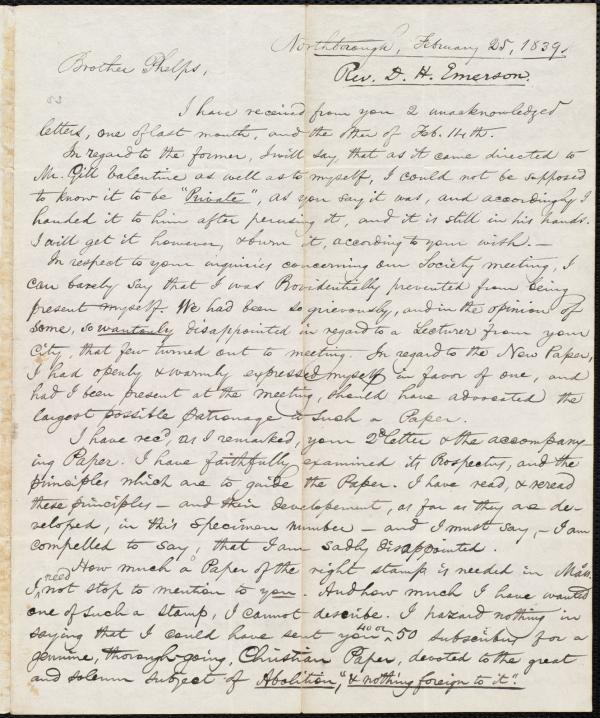 Northborough, February 25, 1839.
Brother Phelps,
Rev. D. H. Emerson.
I have received from you 2 unacknowledged
letters, one of last month, and the other of Feb. 14th.
In regard to the former, I will say, that as it came directed to
Mr. Gill Valentine as well as to myself, I could not be supposed
to know it to be "Private", as you say it was, and accordingly I
handed it to him after perusing it, and it is still in his hands.
I will get it however, & burn it, according to your wish.—
In respect to your inquiries concerning our Society meeting, I
can barely say that I was Providentially prevented from being
present myself. We had been so grievously, and in the opinion of
some, so wantonly disappointed in regard to a Lecturer from your
City, that few turned out to meeting. In regard to the New Paper,
I had openly & warmly expressed myself in favor of one, and
had I been present at the meeting, should have advocated the
largest possible patronage to such a Paper.
I have rec'd, as I remarked, your 2d letter & the accompany-
ing Paper. I have faithfully examined its Prospectus, and the
principles which are to guide the Paper. I have read, & reread
these principles — and their developement, as far as they are de-
veloped, in this specimen number — and I must say, — I am
compelled to say, that I am sadly disappointed.
How much a Paper of the right stamp is needed in Mass.
I need not stop to mention to you. And how much I have wanted
one of such a stamp, I cannot describe. I hazard nothing in
saying that I could have sent you 40 or 50 subscribers for a
genuine, thorough-going, Christian Paper, devoted to the great
and solemn subject of Abolition, "& nothing foreign to it".